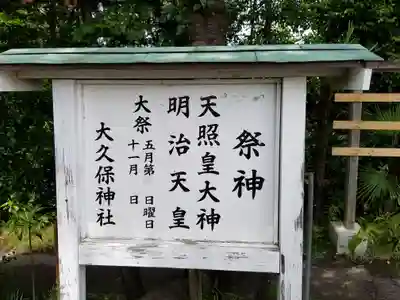 祭神
天照皇大神
明治天皇
大祭 五月第 日曜日
十一月 日
大久保神社